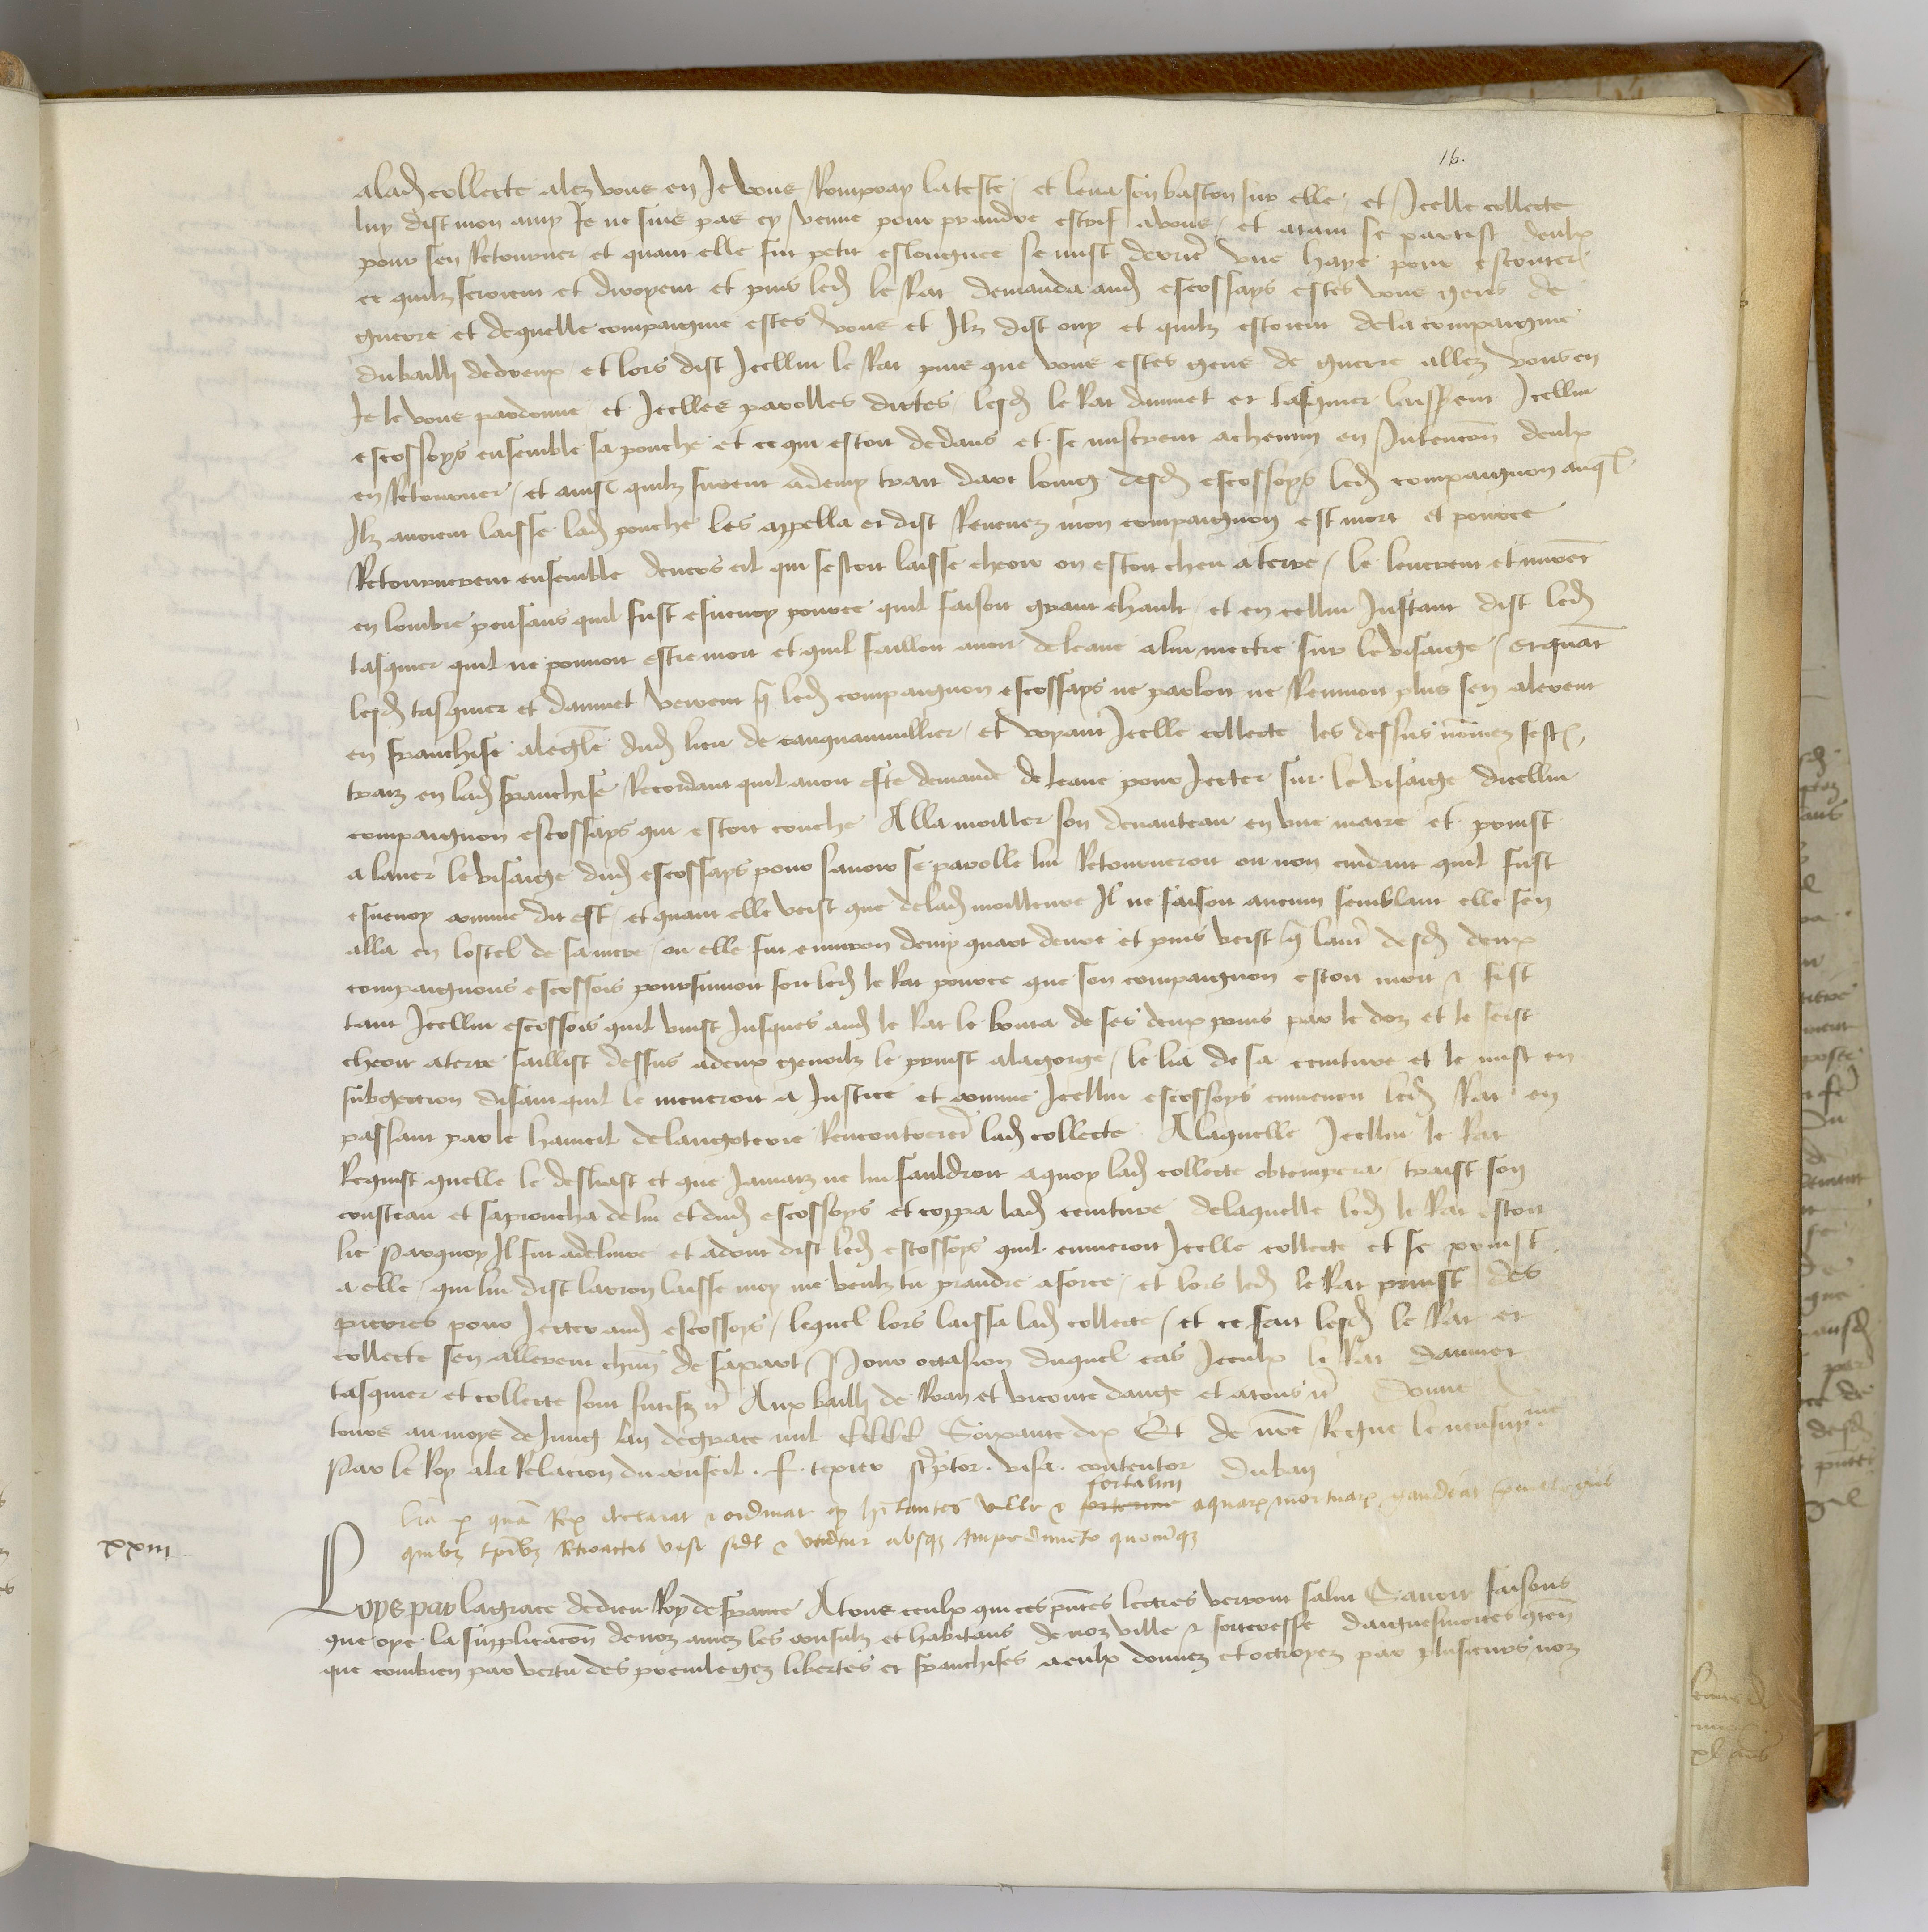 16.
alad collecte alez vous en Je vous Rompray lateste et leva son baston sur elle et Icelle collecte
luy dist mon amy Je ne suis pas cy venue pour prandre estrif a vous et atant se partist deulx
pour sen Retourner et quant elle fut petit eslongnee se mist derrie une haye pour escouter
ce quilz feroient et diroyent et puis led le Rat demanda aud escossays estes vous gens de
guerre et dequelle compaignie estes vous et Ilz dist ouy et quilz estoient dela compaignie
du bailli dedreux et lors dist Icellui le Rat puis que vous estes gens de guerre allez vous en
Je le vous pardonne et Icelles parolles dictes lesd le Rat dannet et tasquier laisserent Icellui
escossoys ensemble sa pouche et ce qui estoit dedans et se misrent achemin en Intencon deulx
en Retourner et ainsi quilz furent ademy trait darc loing desd escossoys led compaignon auql
Ilz avoient laisse lad pouche les appella et dist Revenez mon compaignon est mort et pource
Retournerent ensemble devers cil qui sestoit laisse cheoir ou estoit cheu a terre le leverent et mirent
en lombre pensans quil fust esvenoy pource quil faisoit grant chault et en cellui Instant dist led
tasquier quil ne povoit estre mort et quil failloit avoir deleaue alui mectre sur le visaige et quat
lesd tasquier et dannet virent q led compaignon escossays ne parloit ne Remuoit plus sen alerent
en franchise alegle dud lieu de cauquainvillier et voyant Icelle collecte les dessus nomez sestre
traiz en lad franchise Recordant quil avoit este demande deleaue pour Jecter sur le visaige dicellui
compaignon escossays qui estoit couche Alla moiller son devanteau en une mare et prinst
a laver le visaige dud escossays pour savoir se parolle lui Retourneroit ou non cuidant quil fust
esvenoy comme dit est et quant elle veist que delad moilleure Il ne faisoit aucun semblant elle sen
alla en lostel de sa mere ou elle fut environ demy quart deure et puis veist q laut desd deux
compaignons escossois poursuivoit fort led le Rat pource que son compaignon estoit mort & fist
tant Icellui escossois quil vinst Jusques aud le Rat le bouta de ses deux poins par le doz et le feist
cheoir aterre saillist dessus adeux genoilz le prinst alagorge le lia de sa ceinture et le mist en
subgection disant quil le meneroit a Justice et comme Icellui escossoys emmenoit led Rat en
passant par le hameil delangoterie Rencontreret lad collecte Alaquelle Icellui le Rat
Requist quelle le desliast et que Jamaiz ne lui fauldroit aquoy lad collecte obtempera traist son
cousteau et saproucha delui et dud escossoys et coppa lad ceinture delaquelle led le Rat estoit
lie Parquoy Il fut adelivre et adont dist led escossoys quil enmeroit Icelle collecte et se prinst
a elle qui lui dist larron laisse moy me veulz tu prandre aforce et lors led le Rat prinst des
pierres pour Jecter aud escossoys lequel lors laissa lad collecte et ce fait lesd le Rat et
collecte sen allerent chun de sapart Pour occasion duquel cas Iceulx le Rat dannet
tasquier et collecte sont futifz &c Aux bailli de Rouen et viconte dauge et atous &c Donne a
tours au moys de Juing lan degrace mil CCCC Soixante dix Et de nre Regne le neufiesme
Par le Roy ala Relacion du conseil . f. texier scriptor . visa . contentor Duban
fortalicii
lra p quam Rex declarat & ordinat q hitantes ville & fortericie aquarx mortuarx gaudeat
quibz tpibz Retroactis usi sut & utuntur absqz Impedimento quocuqz
xxiii
Loys par lagrace dedieu Roy de france Atous ceulx qui ces pntes lectres verront salut Savoir faisons
que oye la supplicacon denoz amez les consulz et habitans de noz ville & forteresse daiguesmortes gten
que combien par vertu des previlegez libertes et franchises aeulx donnez et octroyez par plusieurs noz